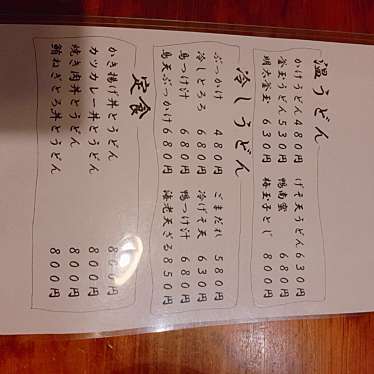 温うどん
かけうどん 480円
釜玉うどん 530円
明太釜玉 630円
げそ天うどん 630円
鴨南蛮 680円
梅玉子とじ 800円
冷しうどん
ぶっかけ 480円
冷しとろろ 680円
鴨つけ汁 680円
鳥天ぶっかけ 680円
ごまだれ 580円
冷げそ天 630円
鴨つけ汁 680円
海老天ざる 850円
定食
かき揚げ丼とうどん 800円
カツカレー丼とうどん 800円
焼き肉丼とうどん 800円
鮪ねぎとろ丼とうどん 800円